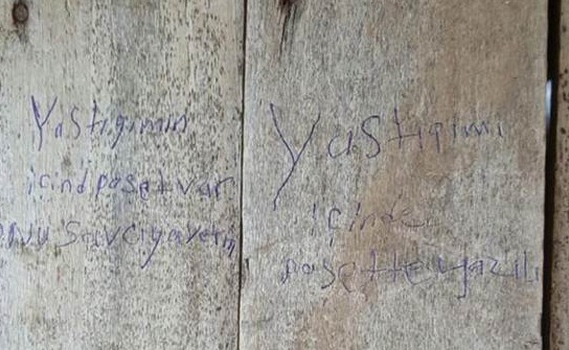 Yastigimin
icind poset var
onu Savciya verin
Yastigimi
içinde
posette yazili